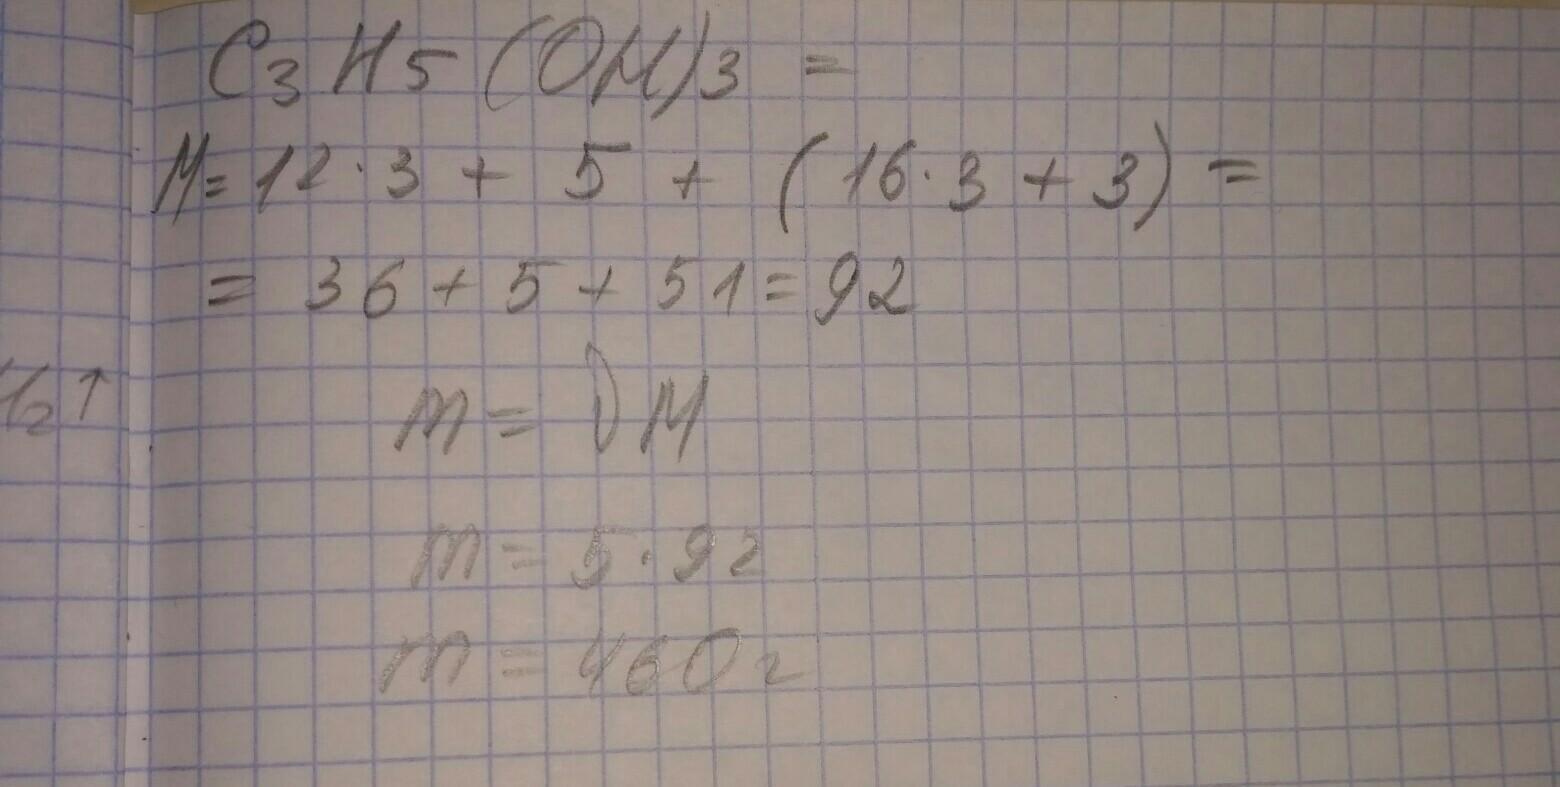 C3H5(OH)3 =
M = 12·3 + 5 + (16·3 + 3) =
= 36 + 5 + 51 = 92
H2↑
m = νM
m = 5·92
m = 460г